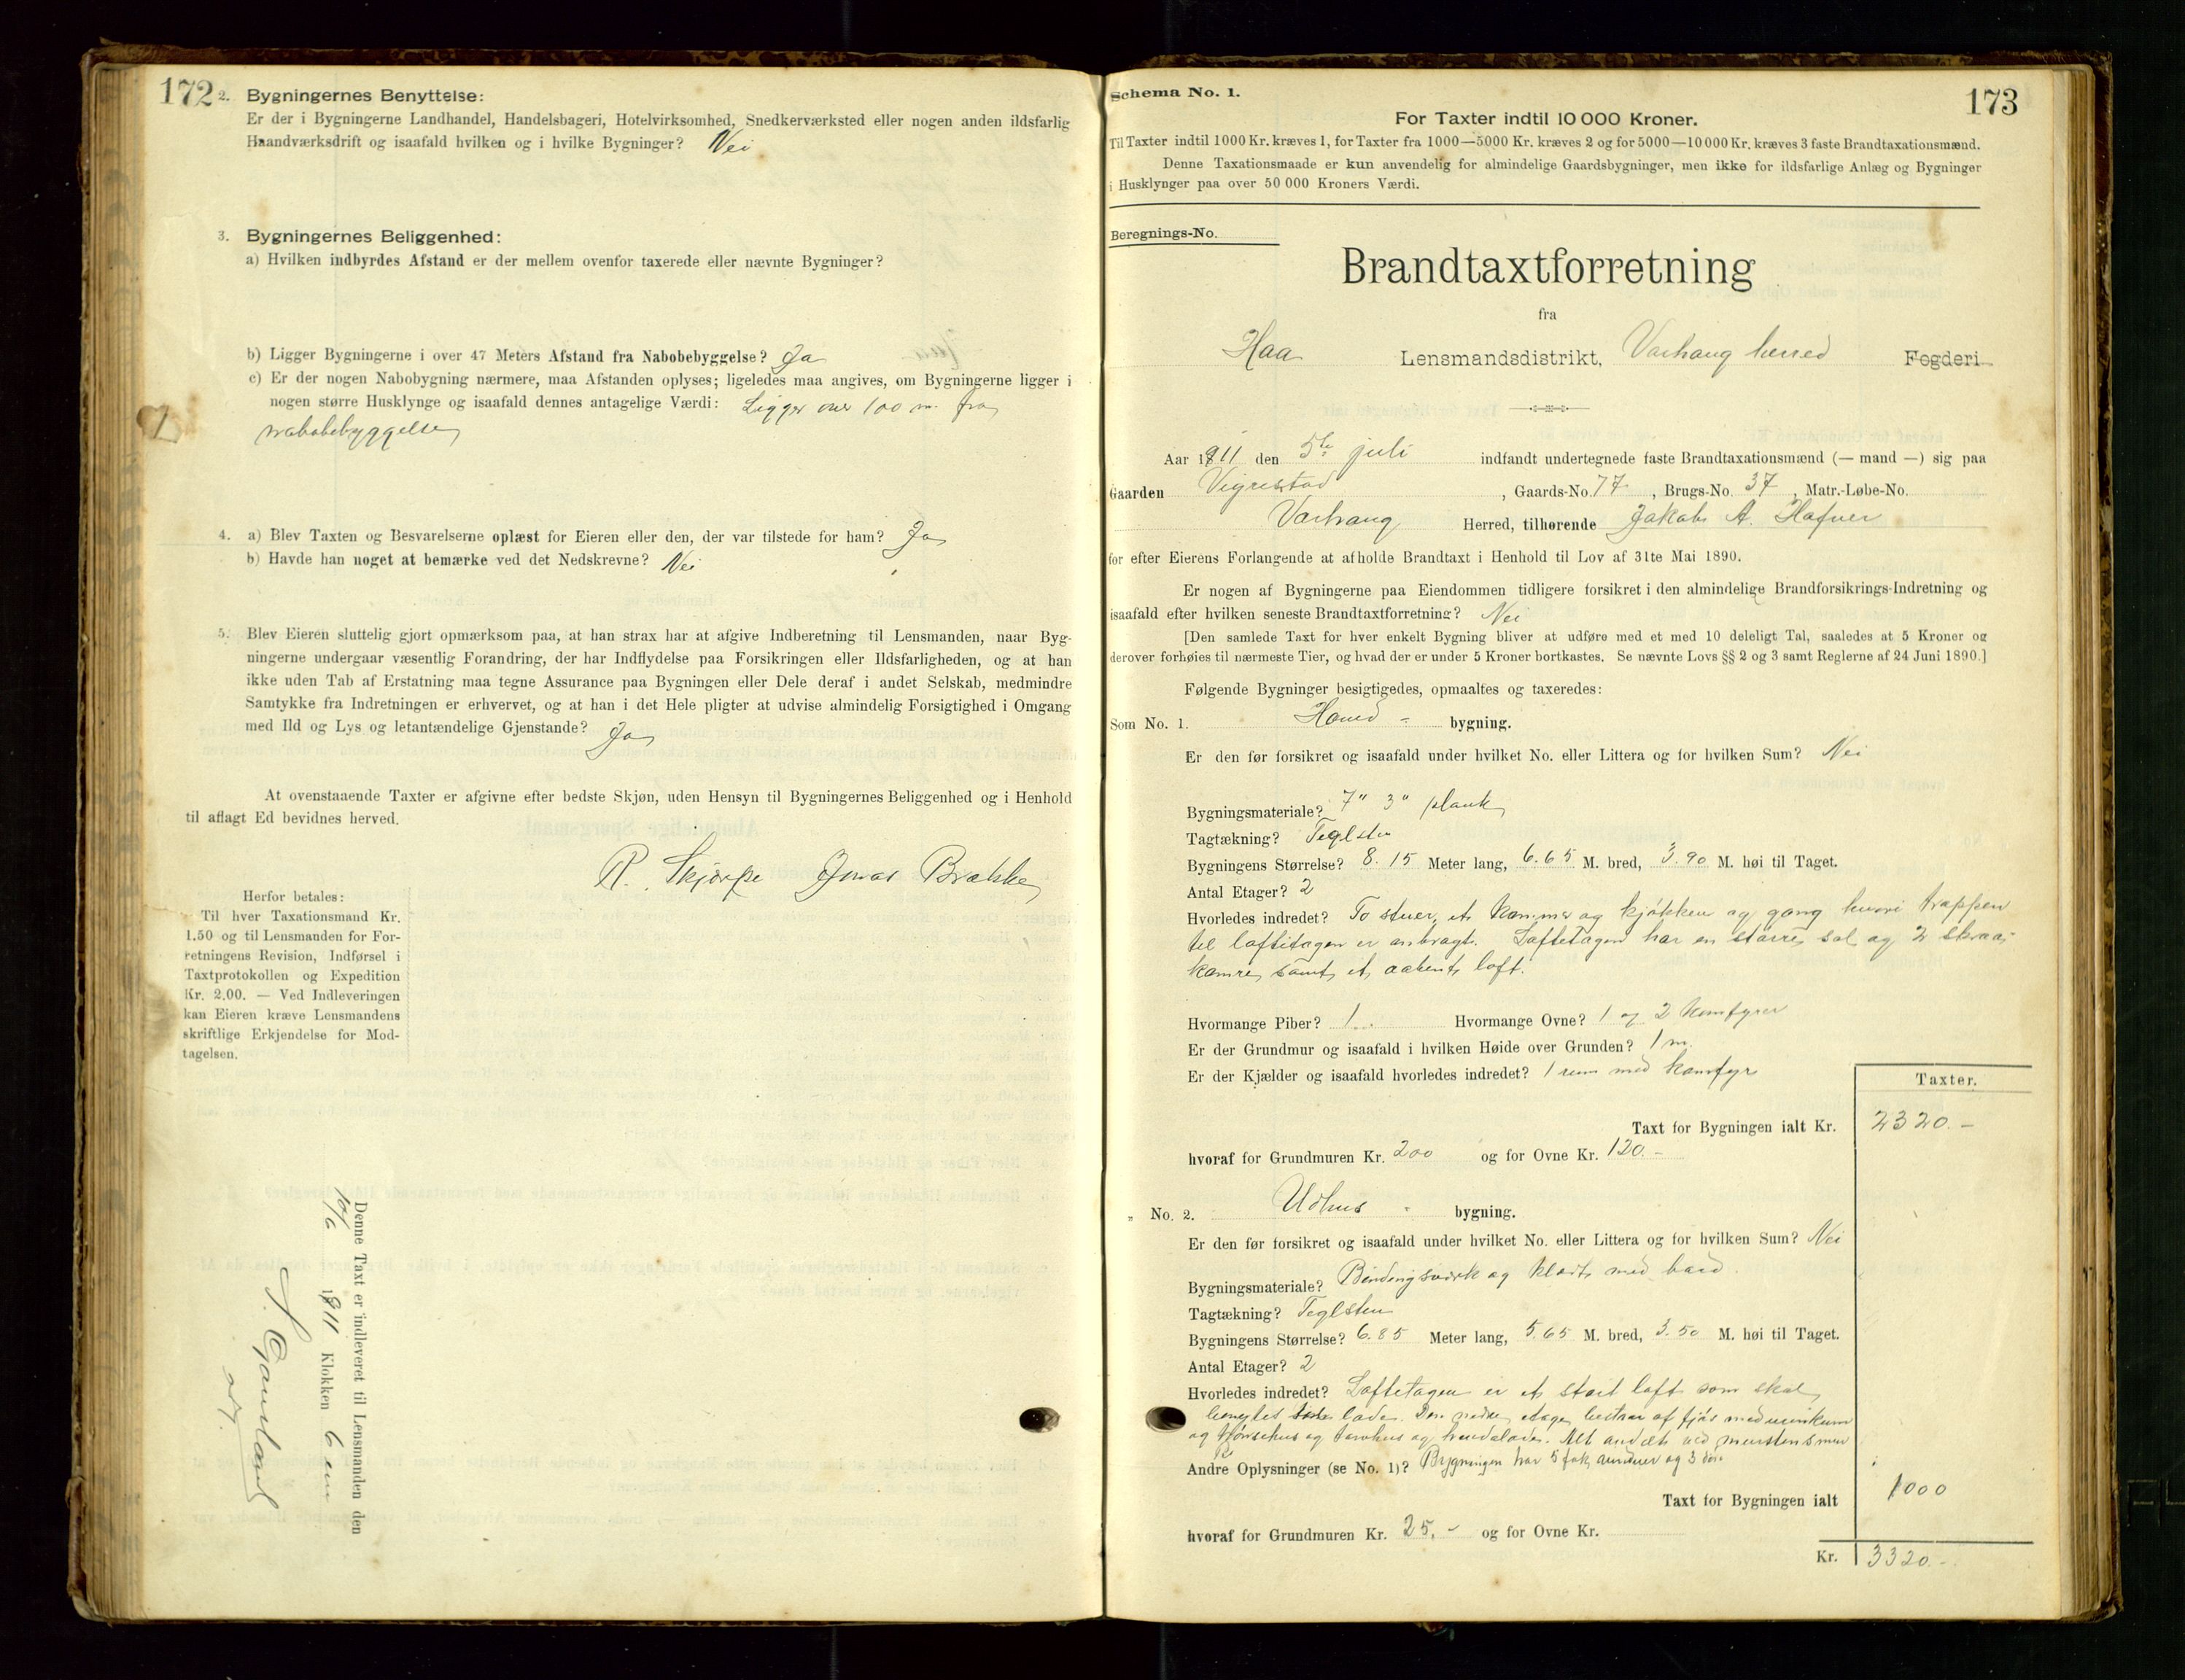 172
2. Bygningernes Benyttelse:
Er der i Bygningerne Landhandel, Handelsbageri, Hotelvirksomhed, Snedkerværksted eller nogen anden ildsfarlig
Haandværksdrift og isaafald hvilken og i hvilke Bygninger? Nei
3. Bygningernes Beliggenhed:
a) Hvilken indbyrdes Afstand er der mellem ovenfor taxerede eller nævnte Bygninger?
b) Ligger Bygningerne i over 47 Meters Afstand fra Nabobebyggelse? Ja
c) Er der nogen Nabobygning nærmere, maa Afstanden oplyses; ligeledes maa angives, om Bygningerne ligger i
nogen større Husklynge og isaafald dennes antagelige Værdi: Ligger over 100 m. fra
nabobebyggelse
4. a) Blev Taxten og Besvarelserne oplæst for Eieren eller den, der var tilstede for ham? Ja
b) Havde han noget at bemærke ved det Nedskrevne? Nei
5. Blev Eieren sluttelig gjort opmærksom paa, at han strax har at afgive Indberetning til Lensmanden, naar Byg-
ningerne undergaar væsentlig Forandring, der har Indflydelse paa Forsikringen eller Ildsfarligheden, og at han
ikke uden Tab af Erstatning maa tegne Assurance paa Bygningen eller Dele deraf i andet Selskab, medmindre
Samtykke fra Indretningen er erhvervet, og at han i det Hele pligter at udvise almindelig Forsigtighed i Omgang
med Ild og Lys og letantændelige Gjenstande? Ja
At ovenstaaende Taxter er afgivne efter bedste Skjøn, uden Hensyn til Bygningernes Beliggenhed og i Henhold
til aflagt Ed bevidnes herved.
R. Skjørpe Jonas Brække
Herfor betales:
Til hver Taxationsmand Kr.
1.50 og til Lensmanden for For-
retningens Revision, Indførsel i
Taxtprotokollen og Expedition
Kr. 2.00. — Ved Indleveringen
kan Eieren kræve Lensmandens
skriftlige Erkjendelse for Mod-
tagelsen.
Denne Taxt er indleveret til Lensmanden den
10/6 1911 Klokken 6 em
173
Schema No. 1.
For Taxter indtil 10 000 Kroner.
Til Taxter indtil 1000 Kr. kræves 1, for Taxter fra 1000—5000 Kr. kræves 2 og for 5000—10 000 Kr. kræves 3 faste Brandtaxationsmænd.
Denne Taxationsmaade er kun anvendelig for almindelige Gaardsbygninger, men ikke for ildsfarlige Anlæg og Bygninger
i Husklynger paa over 50 000 Kroners Værdi.
Beregnings-No.
Brandtaxtforretning
fra
Haa Lensmandsdistrikt, Varhaug herred Fogderi
Aar 1911 den 5te juli indfandt undertegnede faste Brandtaxationsmænd (— mand —) sig paa
Gaarden Vigrestad, Gaards-No. 77, Brugs-No. 37, Matr.-Løbe-No.
Varhaug Herred, tilhørende Jakob A. Hafner
for efter Eierens Forlangende at afholde Brandtaxt i Henhold til Lov af 31te Mai 1890.
Er nogen af Bygningerne paa Eiendommen tidligere forsikret i den almindelige Brandforsikrings-Indretning og
isaafald efter hvilken seneste Brandtaxtforretning? Nei
[Den samlede Taxt for hver enkelt Bygning bliver at udføre med et med 10 deleligt Tal, saaledes at 5 Kroner og
derover forhøies til nærmeste Tier, og hvad der er under 5 Kroner bortkastes. Se nævnte Lovs §§ 2 og 3 samt Reglerne af 24 Juni 1890.]
Følgende Bygninger besigtigedes, opmaaltes og taxeredes:
Som No. 1. Hoved - bygning.
Er den før forsikret og isaafald under hvilket No. eller Littera og for hvilken Sum? Nei
Bygningsmateriale? 7" 3" plank
Tagtækning? Teglsten
Bygningens Størrelse? 8.15 Meter lang, 6.65 M. bred, 3.90 M. høi til Taget.
Antal Etager? 2
Hvorledes indredet? To stuer, et kammer og kjøkken og gang hvori trappen
til loftetagen er anbragt. Loftetagen har en større sal og 2 skraa-
kamre, samt et aabent loft.
Hvormange Piber? 1. Hvormange Ovne? 1 og 2 komfyrer
Er der Grundmur og isaafald i hvilken Høide over Grunden? 1 m.
Er der Kjælder og isaafald hvorledes indredet? 1 rum med komfyr
Taxter.
Taxt for Bygningen ialt Kr. 2320.-
hvoraf for Grundmuren Kr. 200 og for Ovne Kr. 120.-
" No. 2. Udhus - bygning.
Er den før forsikret og isaafald under hvilket No. eller Littera og for hvilken Sum? Nei
Bygningsmateriale? Bindingsværk og klædt med bord.
Tagtækning? Teglsten
Bygningens Størrelse? 6.85 Meter lang, 5.65 M. bred, 3.50 M. høi til Taget.
Antal Etager? 2
Hvorledes indredet? Loftetagen er et stort loft som skal
benyttes lade. Den nedre etage bestaar af fjøs med urinkum
og hønsehus og torvhus og lade. Alt
Andre Oplysninger (se No. 1)? Bygningen har 5 fak vinduer og 3 døre
Taxt for Bygningen ialt 1000
hvoraf for Grundmuren Kr. 25.- og for Ovne Kr.
Kr. 3320.-